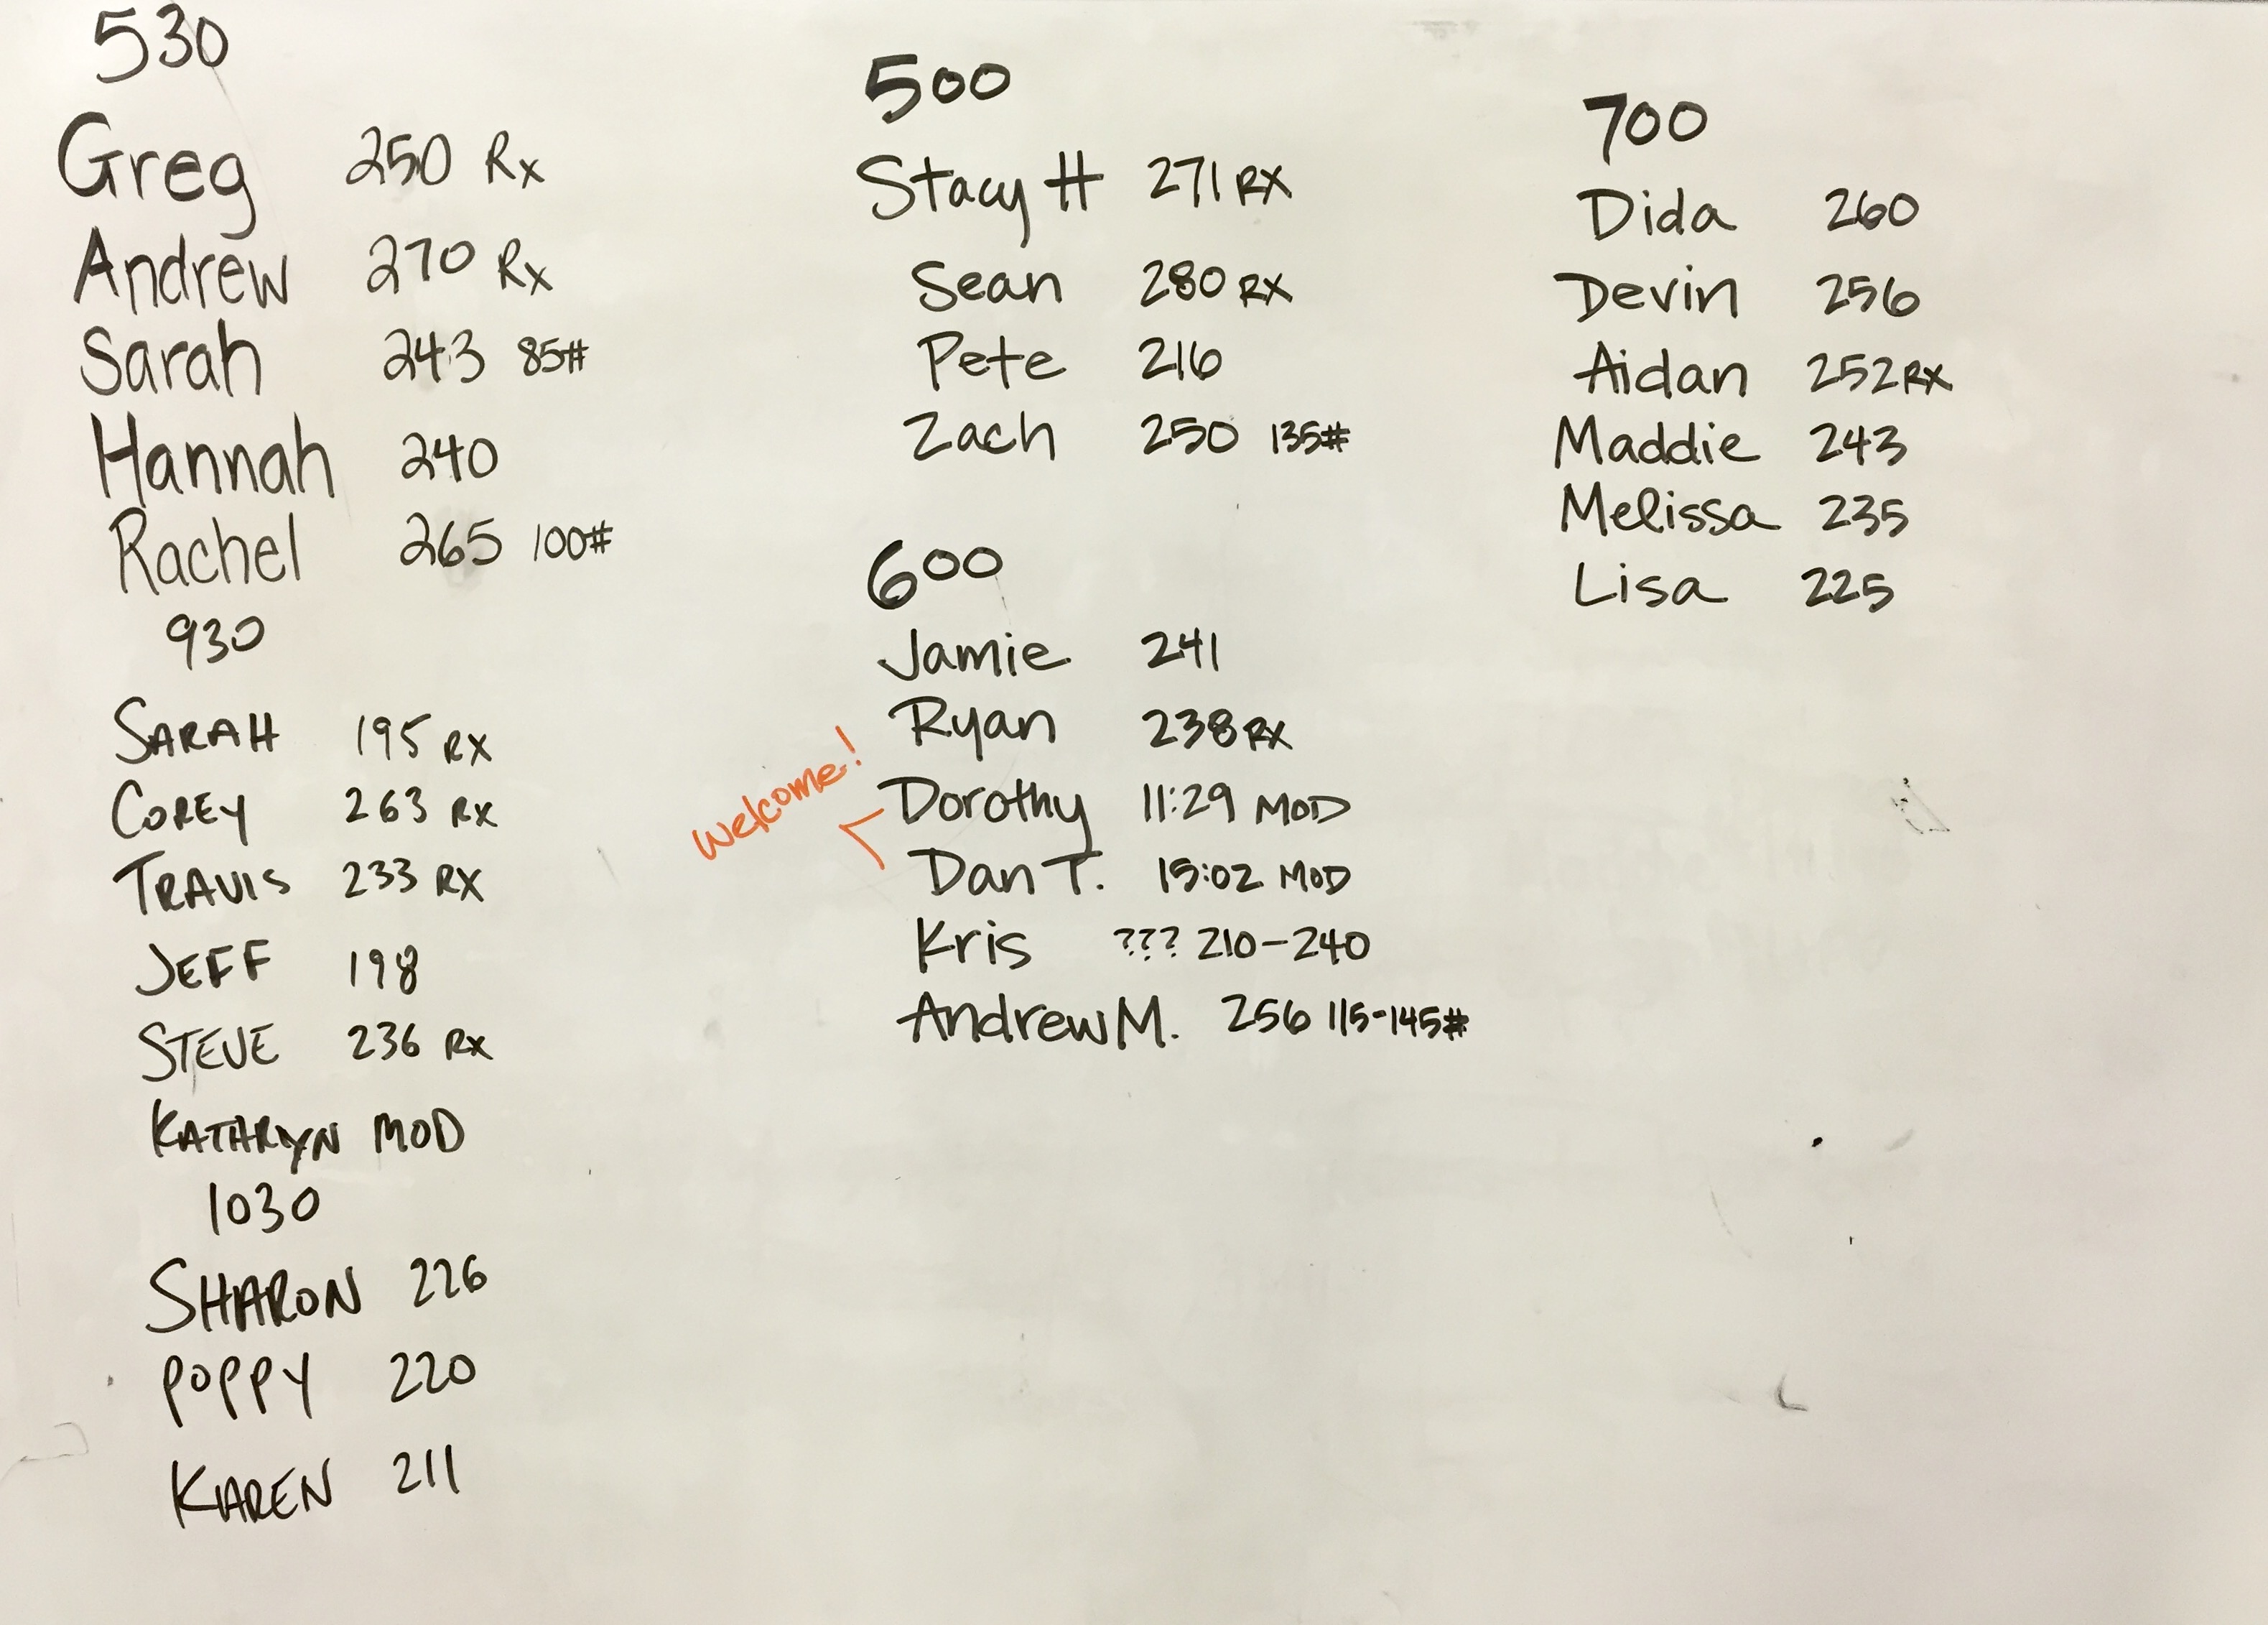 530
Greg 250 Rx
Andrew 270 Rx
Sarah 243 85#
Hannah 240
Rachel 265 100#
930
SARAH 195 RX
COREY 263 RX
TRAVIS 233 RX
JEFF 198
STEVE 236 RX
KATHRYN MOD
1030
SHARON 226
POPPY 220
KAREN 211
500
Stacy H 271 RX
Sean 280 RX
Pete 216
Zach 250 135#
600
Jamie 241
Ryan 238 RX
welcome!
Dorothy 11:29 MOD
Dan T. 15:02 MOD
Kris ??? 210-240
Andrew M. 256 115-145#
700
Dida 260
Devin 256
Aidan 252 RX
Maddie 243
Melissa 235
Lisa 225